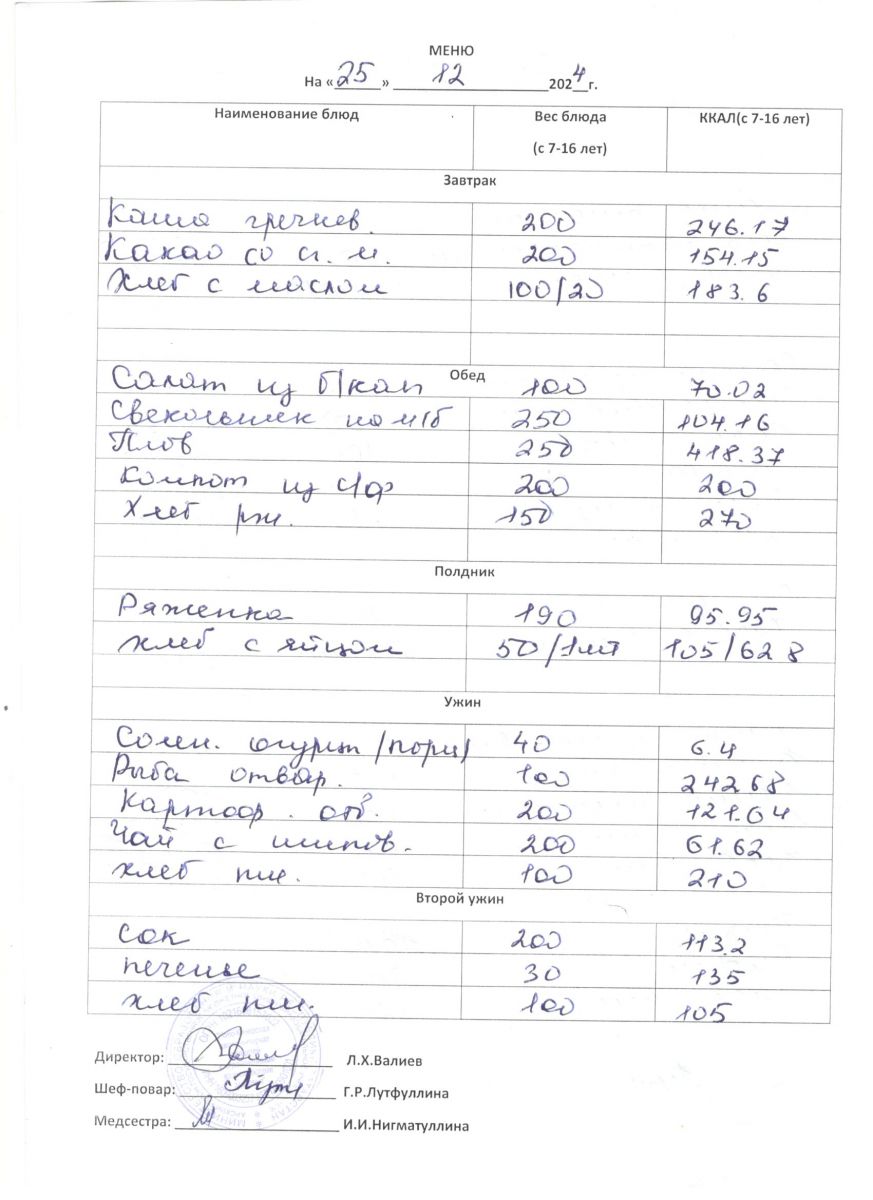 МЕНЮ
На «25» 12 2024г.
Наименование блюд Вес блюда (с 7-16 лет) ККАЛ(с 7-16 лет)
Завтрак
Каша гречнев. 200 246.17
Какао со сг. м. 200 154.15
Хлеб с маслом 100/20 183.6
Обед
Салат из б/кап 100 70.02
Свекольник на м/б 250 104.16
Плов 250 418.37
Компот из с/ф 200 200
Хлеб рж. 150 270
Полдник
Ряженка 190 95.95
хлеб с яйцом 50/1шт 105/62 8
Ужин
Солен. огурец /порц/ 40 6.4
Рыба отвар. 100 242 68
Картоф. отв. 200 121.64
Чай с шипов. 200 61.62
хлеб пш. 100 210
Второй ужин
Сок 200 113.2
печенье 30 135
хлеб пш. 100 105
Директор: Л.Х.Валиев
Шеф-повар: Г.Р.Лутфуллина
Медсестра: И.И.Нигматуллина